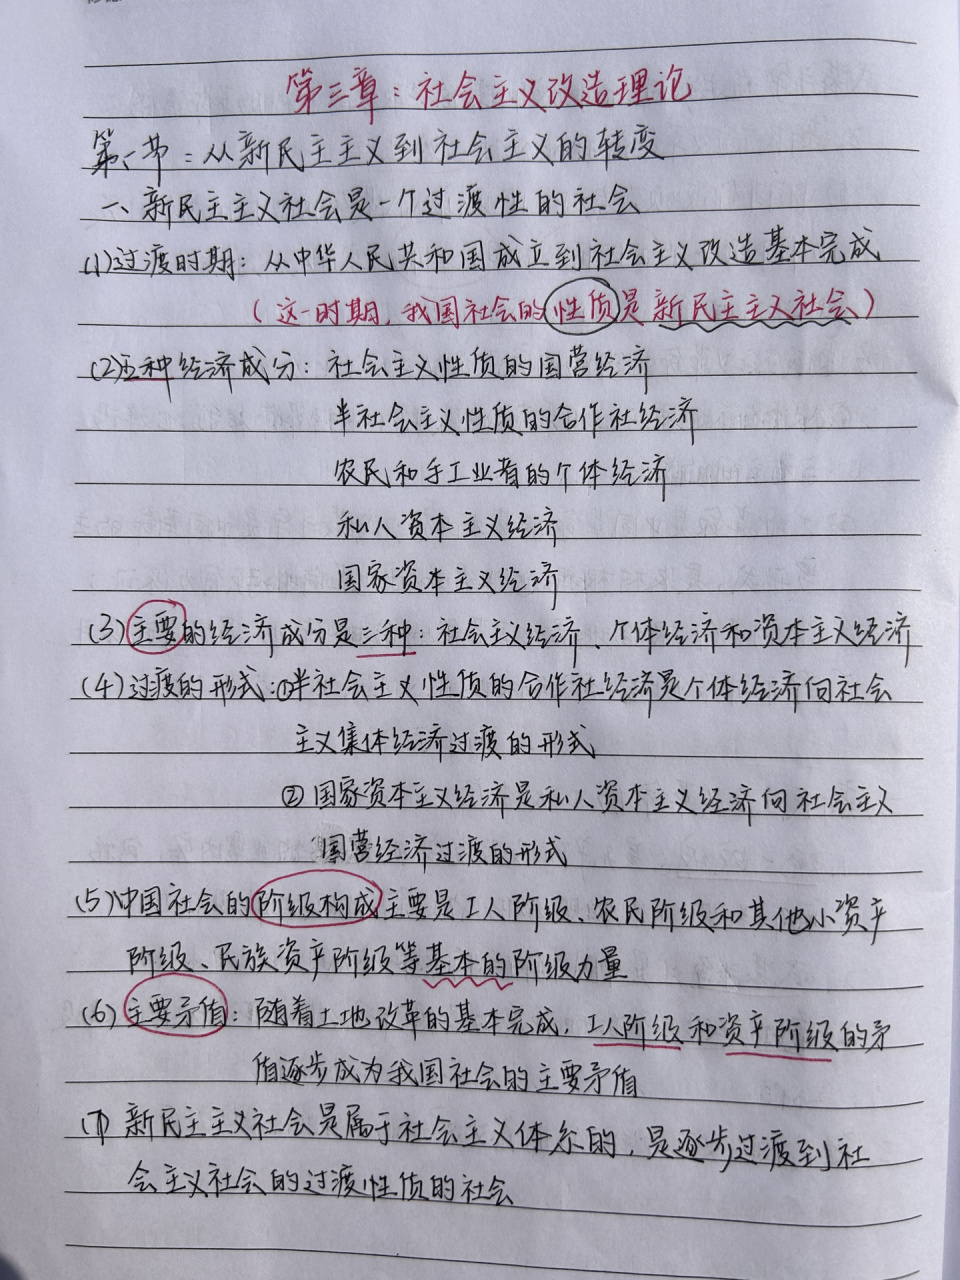 第三章：社会主义改造理论
第一节：从新民主主义到社会主义的转变
一、新民主主义社会是一个过渡性的社会
(1)过渡时期：从中华人民共和国成立到社会主义改造基本完成
（这一时期，我国社会的性质是新民主主义社会）
(2)五种经济成分：社会主义性质的国营经济
半社会主义性质的合作社经济
农民和手工业者的个体经济
私人资本主义经济
国家资本主义经济
(3)主要的经济成分是三种：社会主义经济、个体经济和资本主义经济
(4)过渡的形式：①半社会主义性质的合作社经济是个体经济向社会
主义集体经济过渡的形式
②国家资本主义经济是私人资本主义经济向社会主义
国营经济过渡的形式
(5)中国社会的阶级构成主要是工人阶级、农民阶级和其他小资产
阶级、民族资产阶级等基本的阶级力量
(6)主要矛盾：随着土地改革的基本完成，工人阶级和资产阶级的矛
盾逐步成为我国社会的主要矛盾
(7)新民主主义社会是属于社会主义体系的，是逐步过渡到社
会主义社会的过渡性质的社会